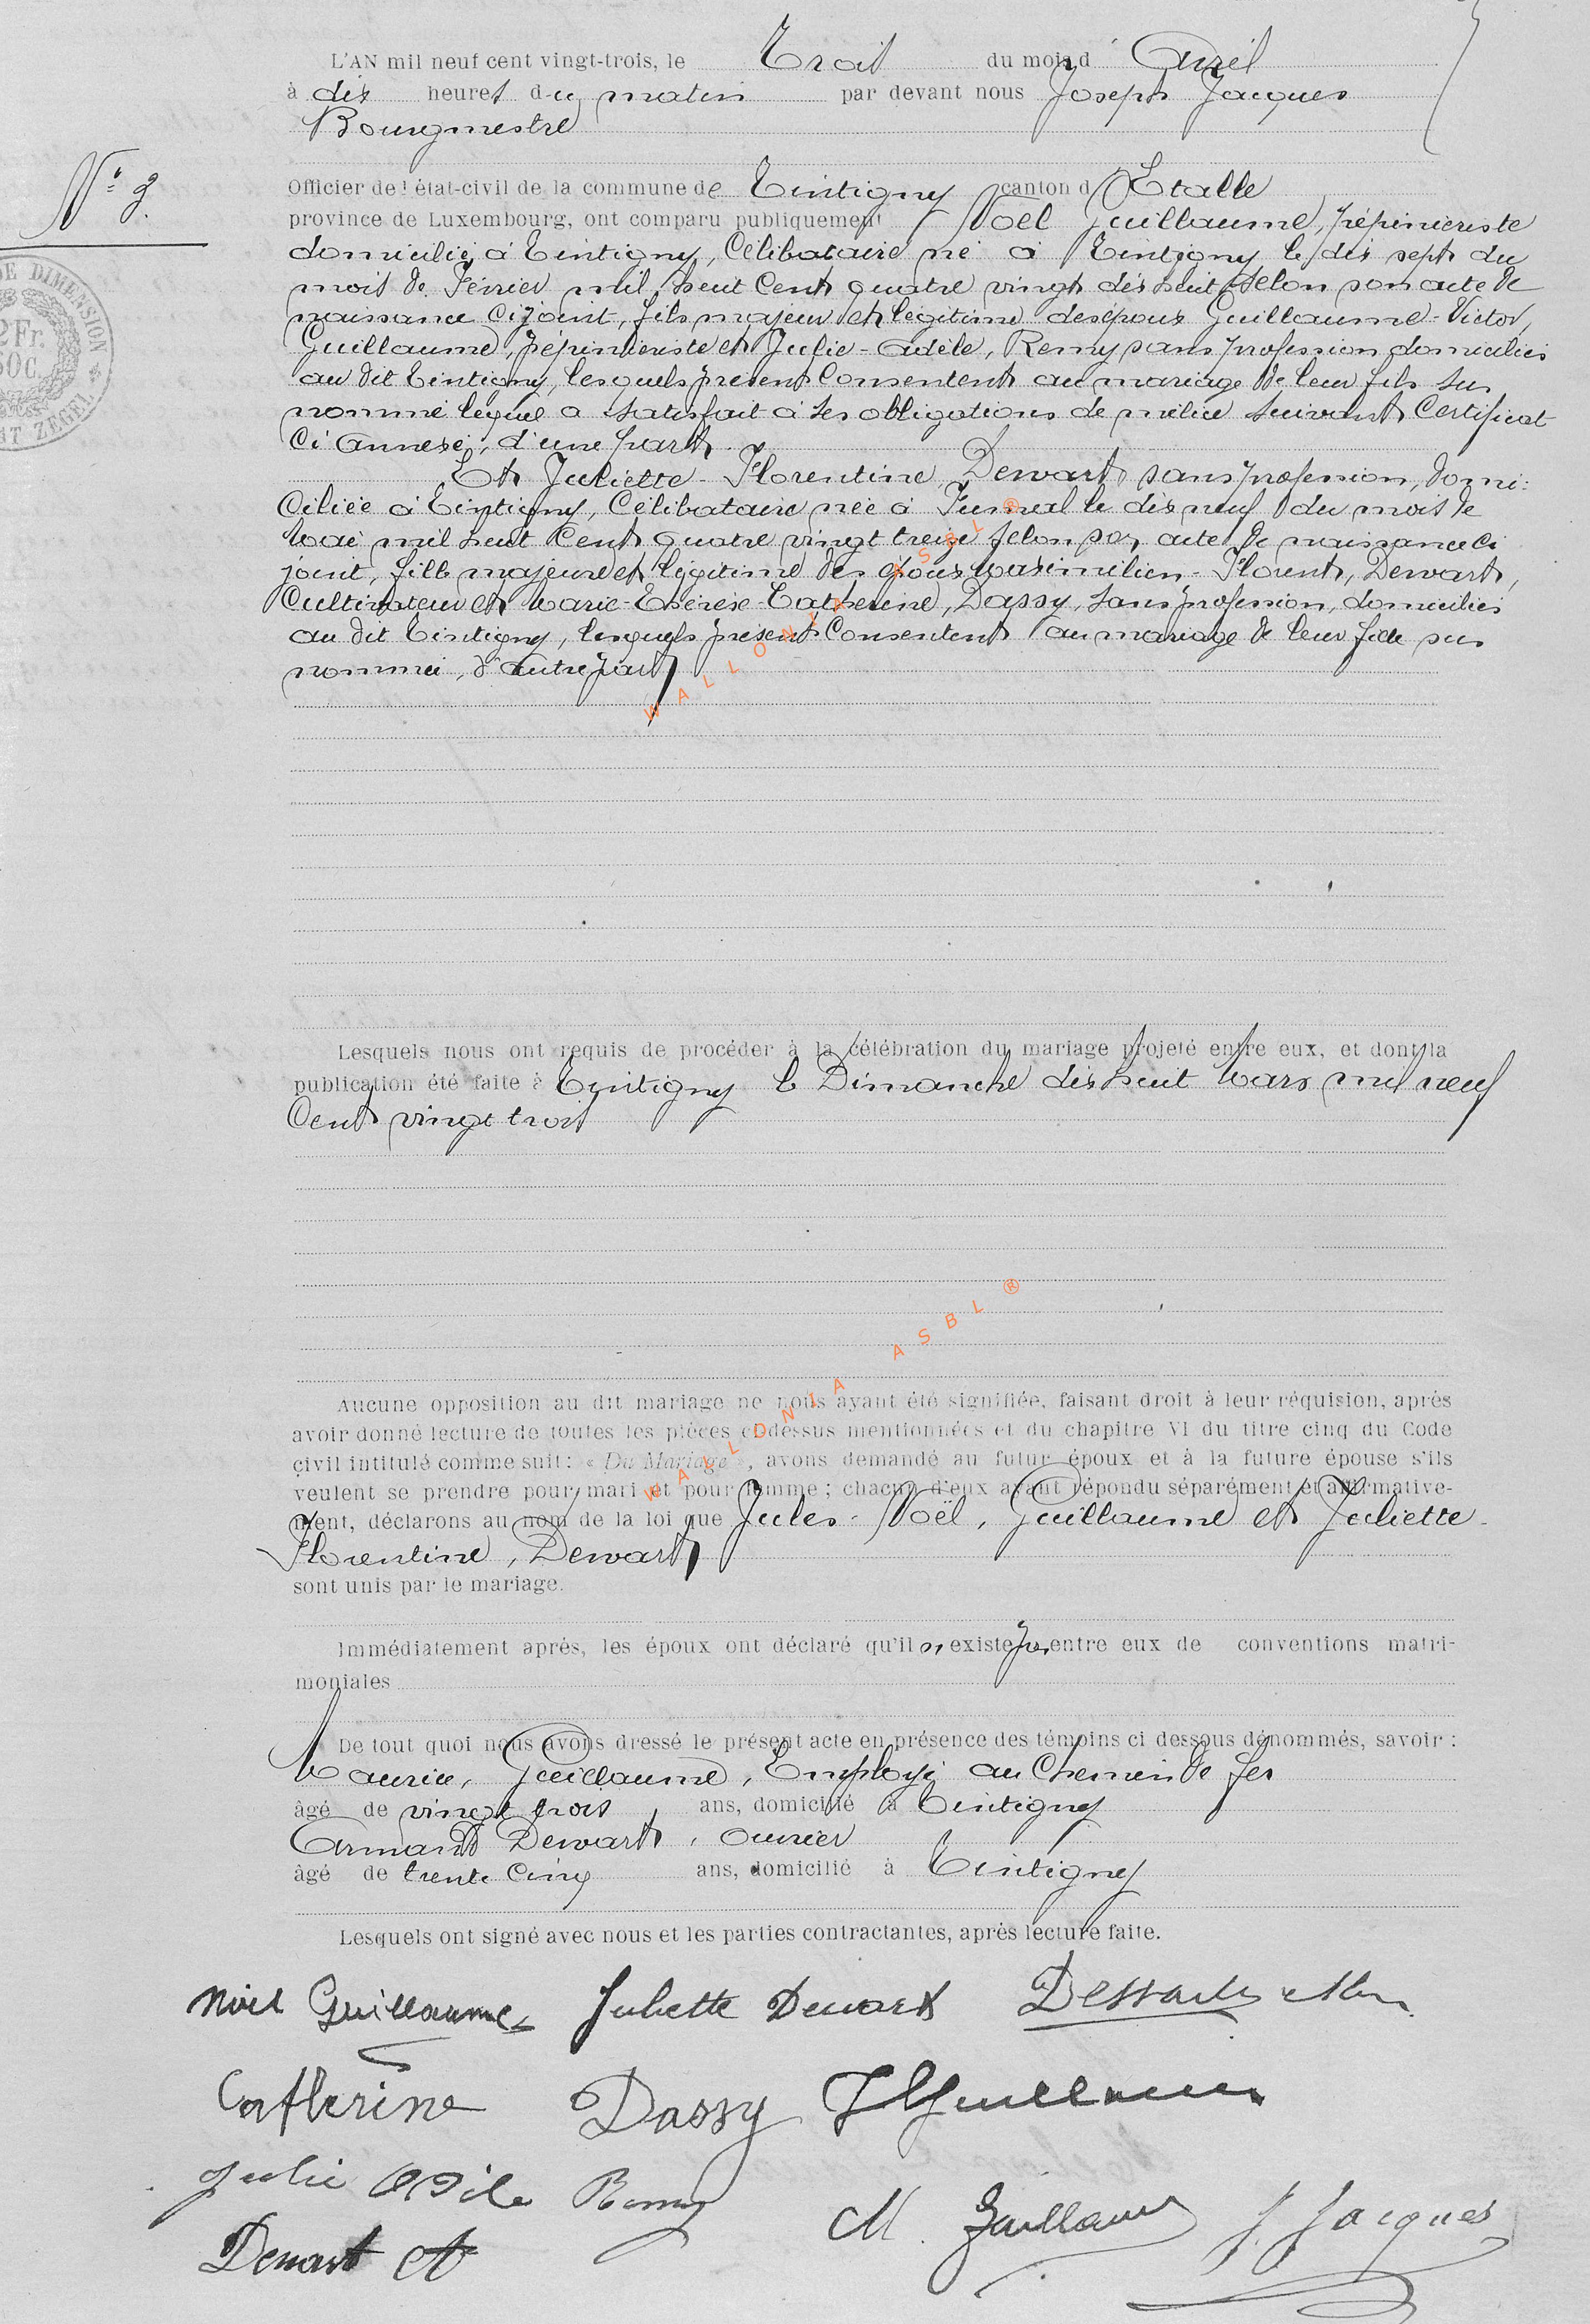 L'AN mil neuf cent vingt-trois, le Trois du mois d'Avril
à dix heures du matin par devant nous Joseph Jacques
Bourgmestre
N° 3.
Officier de l'état-civil de la commune de Tintigny canton d'Etalle
province de Luxembourg, ont comparu publiquement Noël Guillaume, pépinieriste
domicilié à Tintigny, Célibataire né à Tintigny le dix sept du
mois de Février mil huit Cent quatre vingt dix huit selon son acte de
naissance ci joint, fils majeur et légitime des époux Guillaume-Victor,
Guillaume, pépinieriste et Julie-Adèle, Remy sans profession domiciliés
au dit Tintigny, lesquels présents Consentent au mariage de leur fils sus
nommé lequel a satisfait à ses obligations de milice suivant Certificat
Ci Annexé, d'une part
Et Juliette-Florentine, Dewart sans profession, domi:
Ciliée à Tintigny, Célibataire née à le dix neuf du mois de
Mai mil huit Cent quatre vingt treize selon son acte de naissance Ci
joint, fille majeure et légitime des époux Maximilien-Florent, Dewart,
Cultivateur et Marie-Thérèse-Catherine, Dassy, sans profession, domiciliés
au dit Tintigny, lesquels présents Consentent au mariage de leur fille sus
nommée, d'autre part
WALLONIA ASBL ®
Lesquels nous ont requis de procéder à la célébration du mariage projeté entre eux, et dont la
publication été faite à Tintigny le Dimanche dix huit Mars mil neuf
Cent vingt trois
WALLONIA ASBL ®
Aucune opposition au dit mariage ne nous ayant été signifiée, faisant droit à leur réquision, après
avoir donné lecture de toutes les pièces ci-dessus mentionnées et du chapitre VI du titre cinq du Code
civil intitulé comme suit: « Du Mariage », avons demandé au futur époux et à la future épouse s'ils
veulent se prendre pour mari et pour femme; chacun d'eux ayant répondu séparément et affirmative-
ment, déclarons au nom de la loi que Jules-Noël, Guillaume et Juliette-
Florentine, Dewart
sont unis par le mariage.
Immédiatement après, les époux ont déclaré qu'il n'existe pas entre eux de conventions matri-
moniales
De tout quoi nous avons dressé le présent acte en présence des témoins ci dessous dénommés, savoir :
Maurice, Guillaume, Employé au Chemin de fer
âgé de vingt trois ans, domicilié à Tintigny
Armand Dewart, ouvrier
âgé de trente Cinq ans, domicilié à Tintigny
Lesquels ont signé avec nous et les parties contractantes, après lecture faite.
Noël Guillaume Juliette Dewart
Catherine Dassy Guillaume
Julie Adèle Remy M. Guillaume J. Jacques
Dewart A
DE DIMENSION
2Fr.
50c.
T ZEGEL